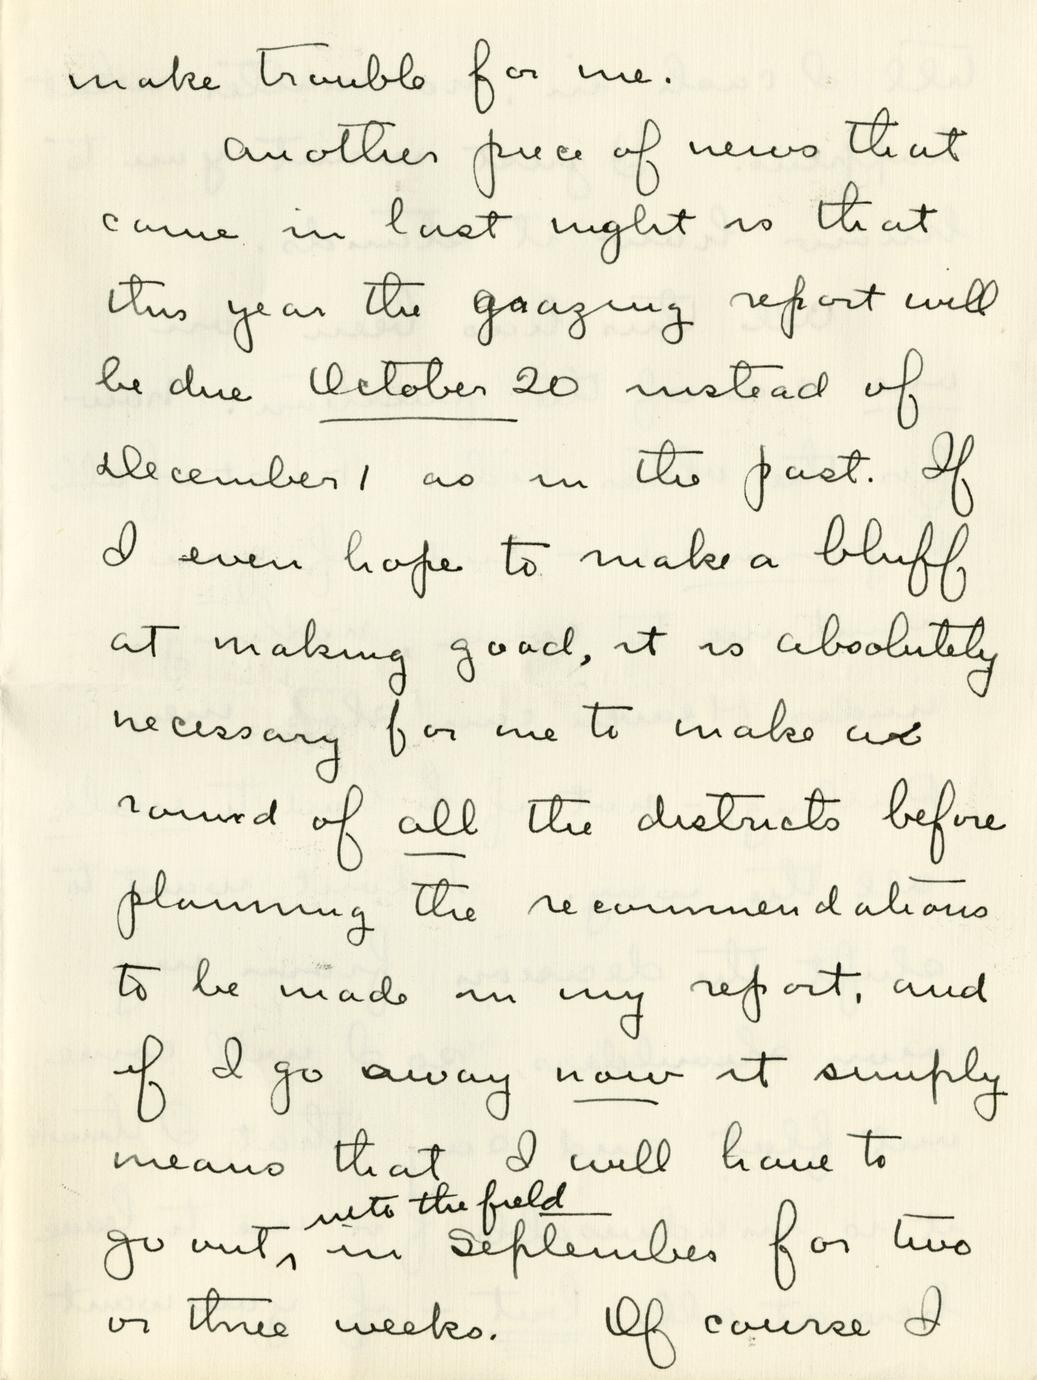 make trouble for me.
Another piece of news that
came in last night is that
this year the grazing report will
be due October 20 instead of
December 1 as in the past. If
I even hope to make a bluff
at making good, it is absolutely
necessary for me to make a
round of all the districts before
planning the recommendations
to be made in my report, and
if I go away now it simply
means that I will have to
into the field
go out, in September for two
or three weeks. Of course I